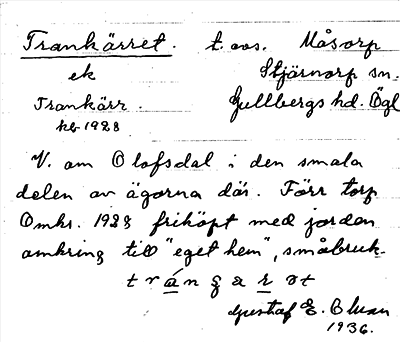 Trankärret. t. avs. Måsorp
ek Stjärnorp sn.
Trankärr. Gullbergs hd. Ögl
kb 1928
V. om Olofsdal i den smala
delen av ägorna där. Förr torp
Omkr. 1928 friköpt med jorden
omkring till "eget hem", småbruk.
Gustaf E. Olsson
1936.